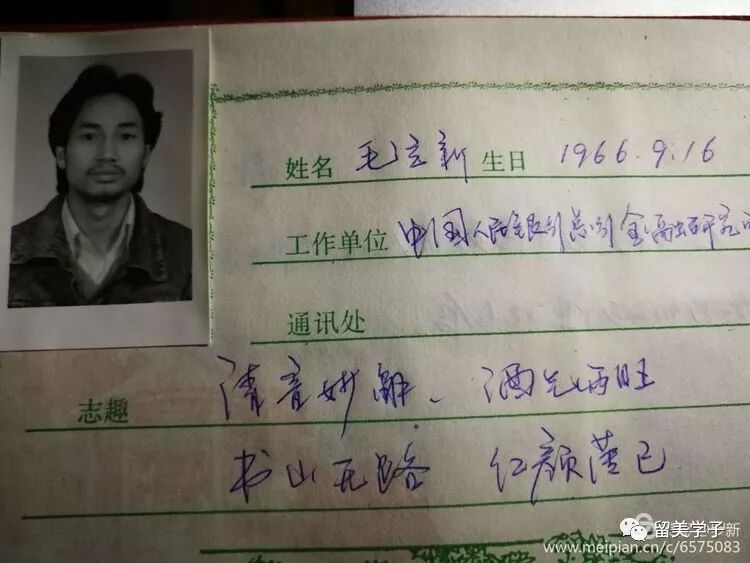 姓名 毛立新 生日 1966.9.16
工作单位 中国人民银行总行金融研究
通讯处
志趣 清音妙解、酒
书山无路 红颜 已
留美学子
www.meipian.cn/c/6575083